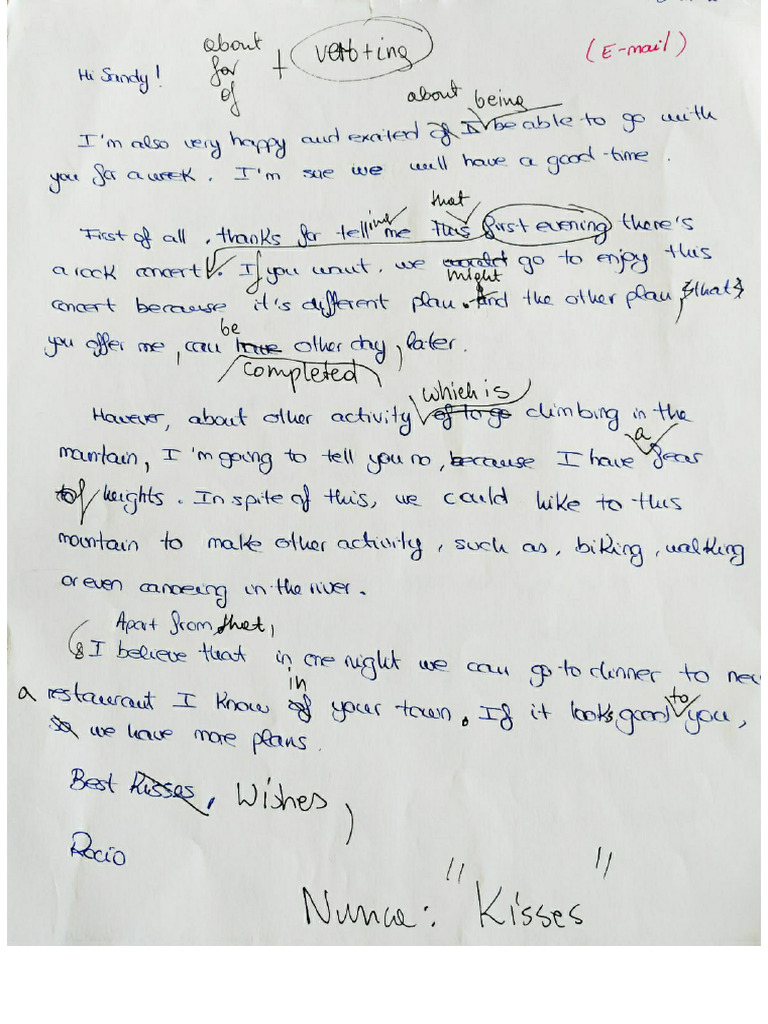 about
for + verb+ing
of
(E-mail)
Hi Sandy!
about being
I'm also very happy and exaited of I be able to go with
you for a week. I'm sue we will have a good time.
that
First of all, thanks for telling me this first evening there's
a rock concert. If you want, we would go to enjoy this
might
concert because it's different plan. And the other plan, that
be
you offer me, can have other day, later.
completed
which is
However, about other activity of to go climbing in the
a
mantain, I'm going to tell you no, because I have fear
of heights. In spite of this, we could hike to this
mountain to make other activity, such as, biking, walking
or even canoeing in the river.
Apart from that,
I believe that in one night we can go to dinner to new
in
a restaurant I know of your town. If it looks good to you,
so we have more plans.
Best Kisses, Wishes,
Rocio
Nunca: "Kisses"